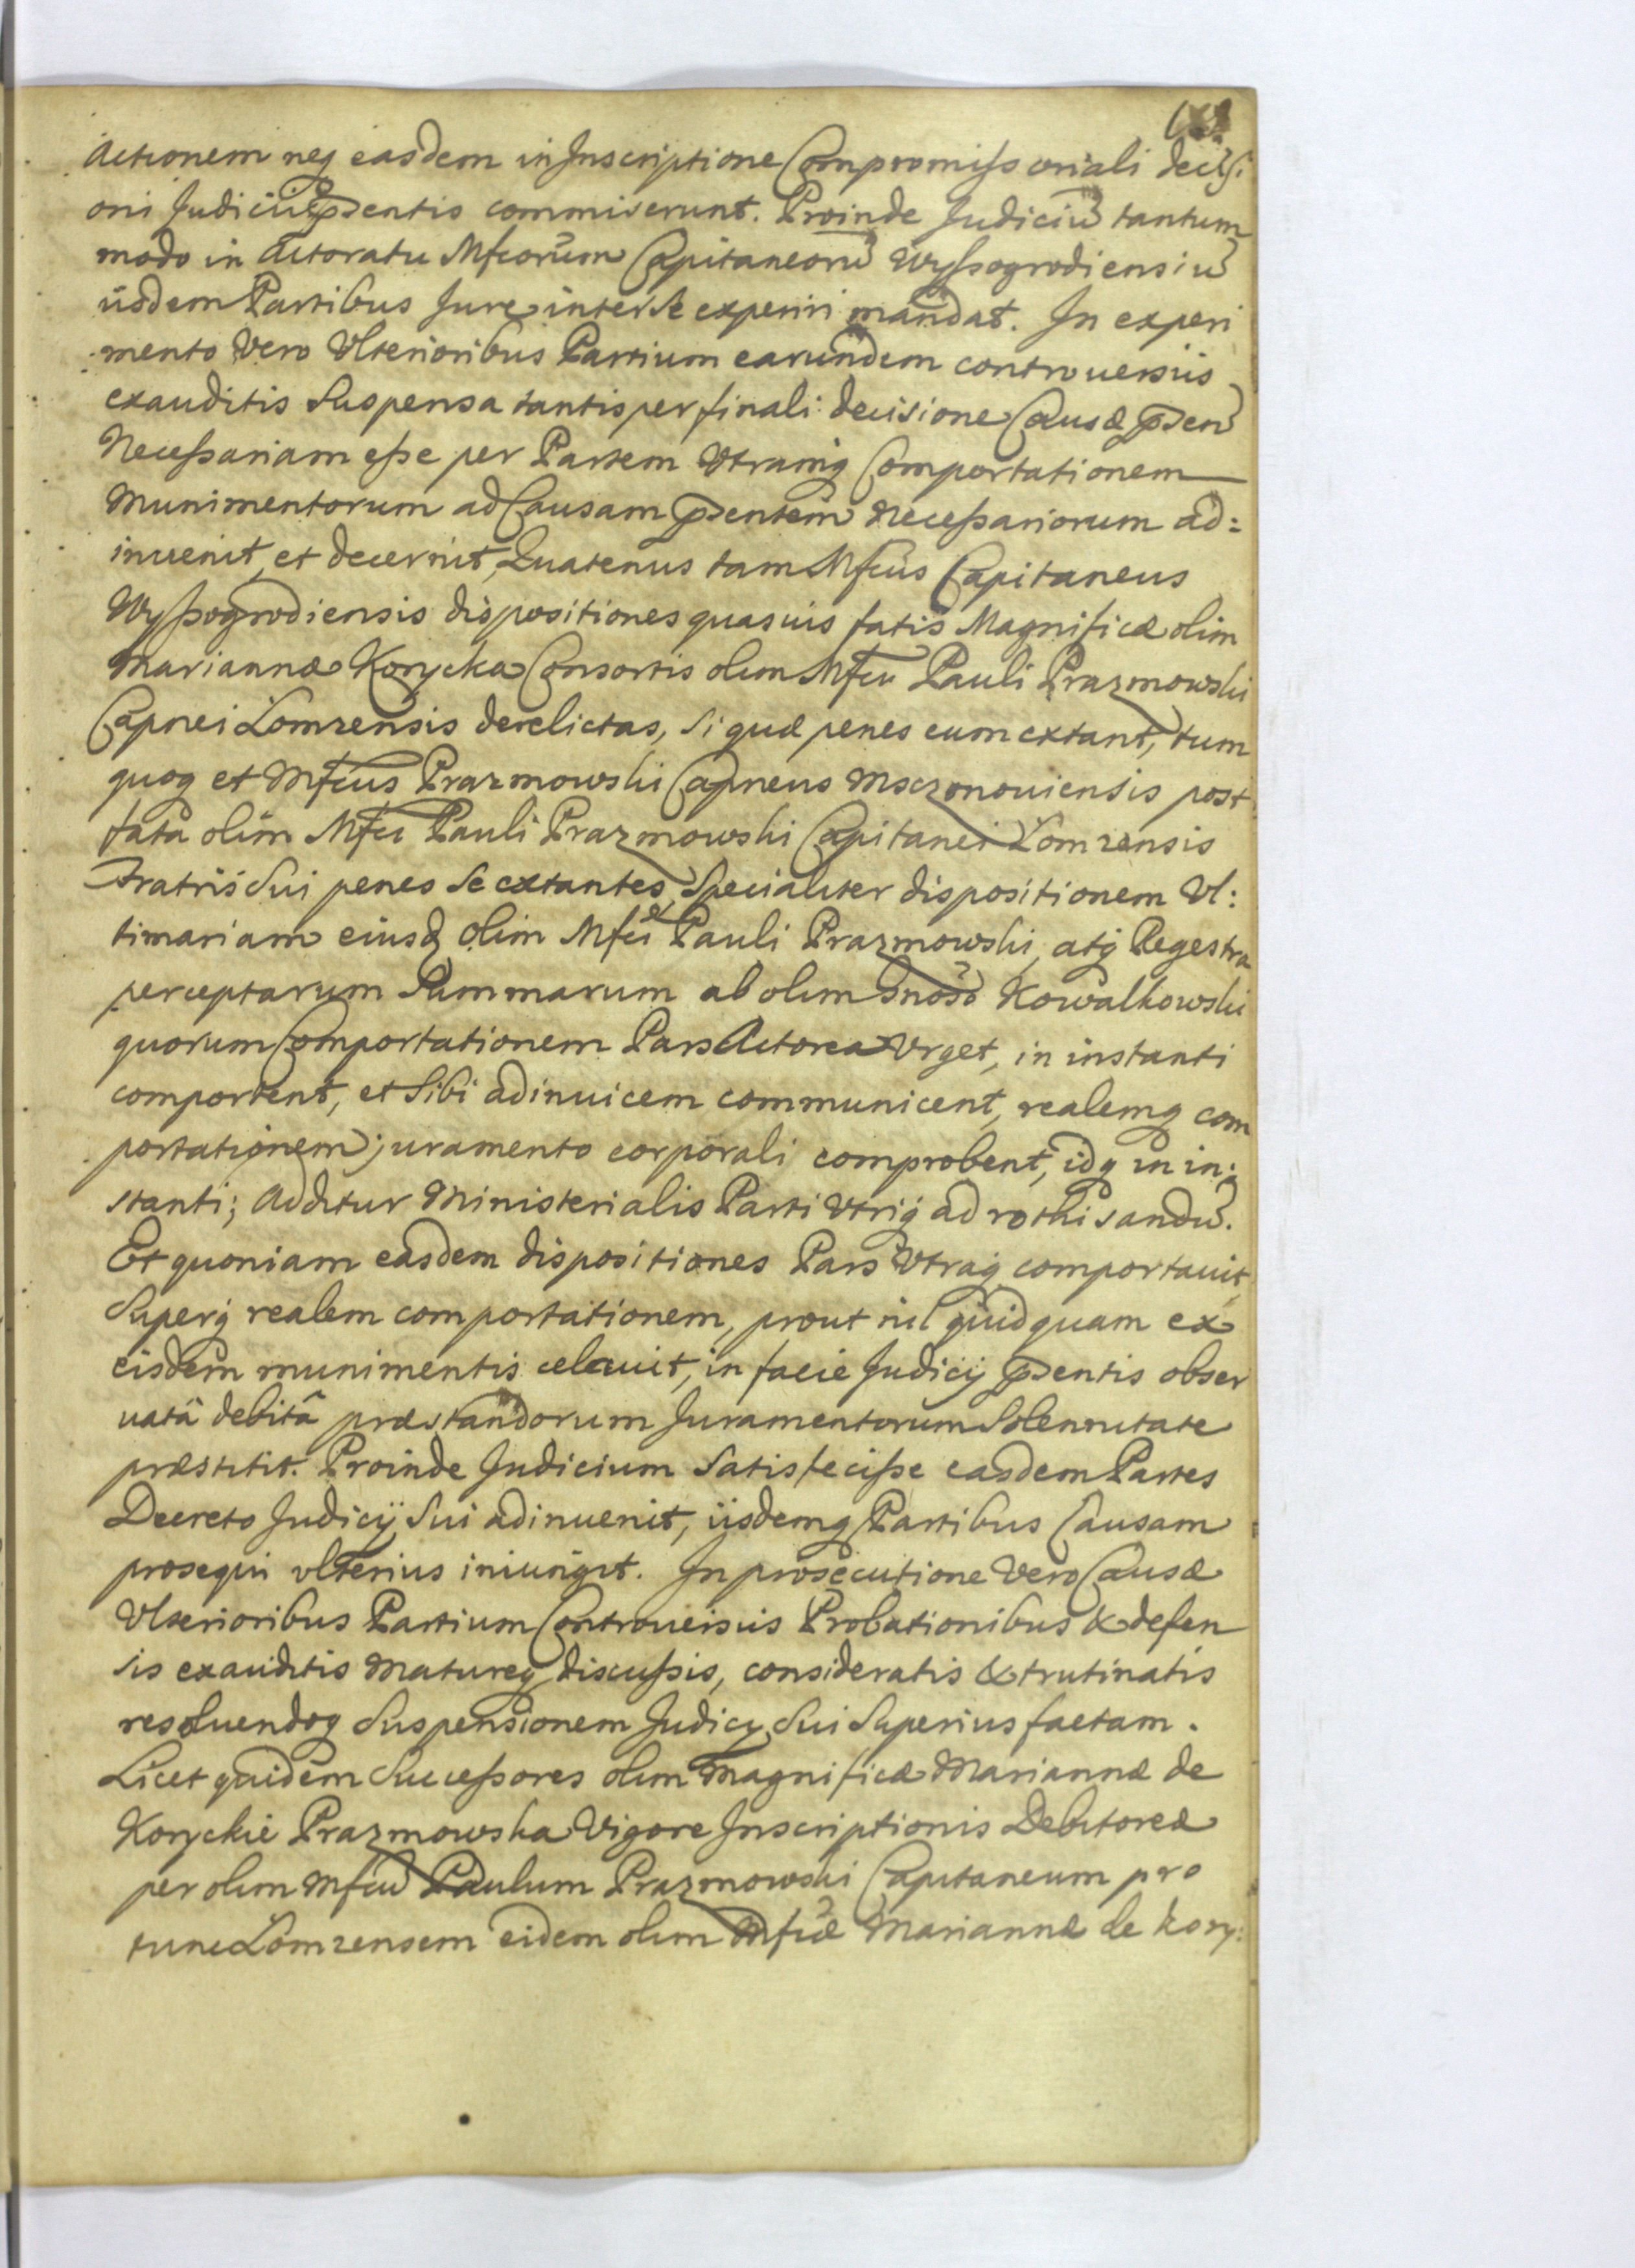 Actionem neq easdem in Inscriptione Compromissoriali decisi
oni Judicii pntis commiserunt. Proinde Judiciu tantum
modo in Actoratu Mfcorum Capitaneoru Wyssogrodiensiu
iisdem Partibus Jure inter se experiri mandat. In experi
mento Vero Ulterioribus Partium earundem controuersiis
exauditis Suspensa tantisper finali decisione Causæ pnten
Necessariam esse per Partem Utramq Comportationem
Munimentorum ad Causam pntem Necessariorum ad:
inuenit, et decernit, Quatenus tam Mfcus Capitaneus
Wyssogrodiensis dispositiones quasuis fatis Magnificæ olim
Mariannæ Korycka Consortis olim Mfci Pauli Prazmowski
Capnei Lomzensis derelictas, si quæ penes eum extant, tum
quoq et Mfcus Prazmowski Capneus Msczonouiensis post
fata olim Mfci Pauli Prazmowski Capitanei Lomzensis
Fratris Sui penes Se extantes, Specialiter dispositionem Ul:
timariam eiusd olim Mfci Pauli Prazmowski, atq Regestra
perceptarum Summarum ab olim Gnoso Kowalkowski
quorum Comportationem Pars Actorea Urget, in instanti
comportent, et Sibi adinuicem communicent, realemq com
portationem juramento corporali comprobent, idq in in:
stanti; Additur Ministerialis Parti Utriq ad rothisandu.
Et quoniam easdem dispositiones Pars Utraq comportauit,
Superq realem comportationem, prout nil quidquam ex
eisdem munimentis celauit, in facie Judicij pntis obser
uatâ debitâ præstandorum Juramentorum Solennitate
præstitit. Proinde Judicium Satisfecisse easdem Partes
Decreto Judicij Sui adinuenit, iisdemq Partibus Causam
prosequi ulterius iniungit. In prosecutione Vero Causæ
Ulterioribus Partium Controuersiis Probationibus & defen
sis exauditis Matureq discussis, consideratis & trutinatis
resoluendoq Suspensionem Judicij Sui Superius factam.
Licet quidem Successores olim Magnificæ Mariannæ de
Koryckie Prazmowska Vigore Inscriptionis Debitoreæ
per olim Mfcu Paulum Prazmowski Capitaneum pro
tunc Lomzensem eidem olim Mfcæ Mariannæ de Kory: